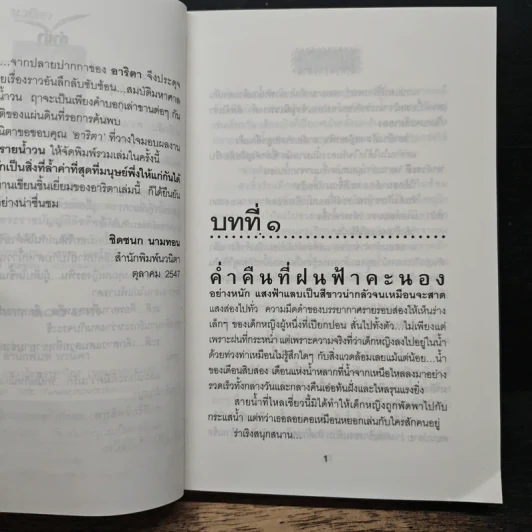 คำนำ
...จากปลายปากกาของ อาริตา จึงประดุจ
ยเรื่องราวอันลึกลับซับซ้อน...สมบัติมหาศาล
น้ำวน ฤๅจะเป็นเพียงคำบอกเล่าขานต่อๆ กัน
ติของแผ่นดินที่รอการค้นพบ
นิตาขอขอบคุณ 'อาริตา' ที่วางใจมอบผลงาน
รายน้ำวน ให้จัดพิมพ์รวมเล่มในครั้งนี้
ักเป็นสิ่งที่ล้ำค่าที่สุดที่มนุษย์พึงให้แก่กันได้
านเขียนชิ้นเยี่ยมของอาริตาเล่มนี้ ก็ได้ยืนยัน
อย่างน่าชื่นชม
ชิดชนก นามทอน
สำนักพิมพ์วนิตา
ตุลาคม 2547
บทที่ ๑
ค่ำคืนที่ฝนฟ้าคะนอง
อย่างหนัก แสงฟ้าแลบเป็นสีขาวน่ากลัวจนเหมือนจะสาด
แสงส่องไปทั่ว ความมืดดำของบรรยากาศรายรอบส่องให้เห็นร่าง
เล็กๆ ของเด็กหญิงผู้หนึ่งที่เปียกปอน สั่นไปทั้งตัว ...ไม่เพียงแต่
เพราะฝนที่กระหน่ำ แต่เพราะความจริงที่ว่าเด็กหญิงลงไปอยู่ในน้ำ
ด้วยท่วงท่าเหมือนไม่รู้สึกใดๆ กับสิ่งแวดล้อมเลยแม้แต่น้อย...น้ำ
ของเดือนสิบสอง เดือนแห่งน้ำหลากที่น้ำจากเหนือไหลลงมาอย่าง
รวดเร็วทั้งกลางวันและกลางคืนเอ่อท้นฝั่งและไหลรุนแรงยิ่ง
สายน้ำที่ไหลเชี่ยวนี้มิได้ทำให้เด็กหญิงถูกพัดพาไปกับ
กระแสน้ำ แต่ทว่าเธอลอยคอเหมือนหยอกเล่นกับใครสักคนอยู่
ร่าเริงสนุกสนาน...
1